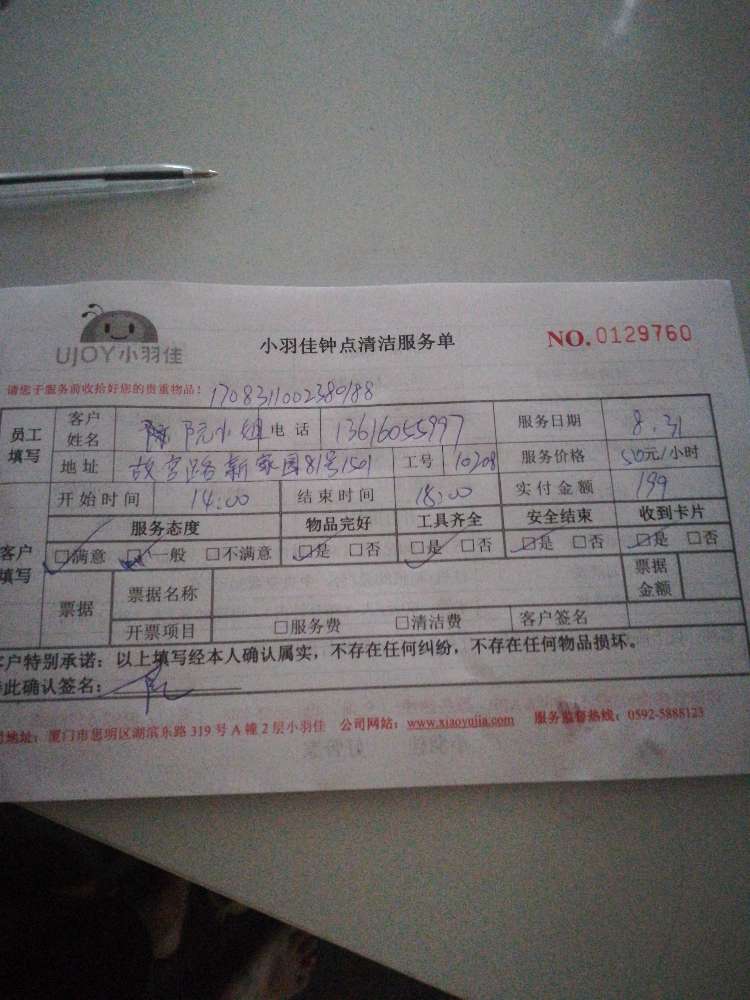 UJOY小羽佳
小羽佳钟点清洁服务单
NO. 0129760
请您于服务前收拾好您的贵重物品！ 1708311002380188
员工填写 客户姓名 阮小姐 电话 13616055997 服务日期 8.31
地址 故宫路新家园81号1501 工号 10208 服务价格 元/小时
开始时间 14:00 结束时间 18:00 实付金额 199
客户填写 服务态度 物品完好 工具齐全 安全结束 收到卡片
□满意 □一般 □不满意 □是 □否 □是 □否 □是 □否 □是 □否
票据 票据名称 票据金额
开票项目 □服务费 □清洁费 客户签名
客户特别承诺：以上填写经本人确认属实，不存在任何纠纷，不存在任何物品损坏。
此确认签名：
地址：厦门市思明区湖滨东路319号A幢2层小羽佳 公司网站：www.xiaoyujia.com 服务监督热线：0592-5888123